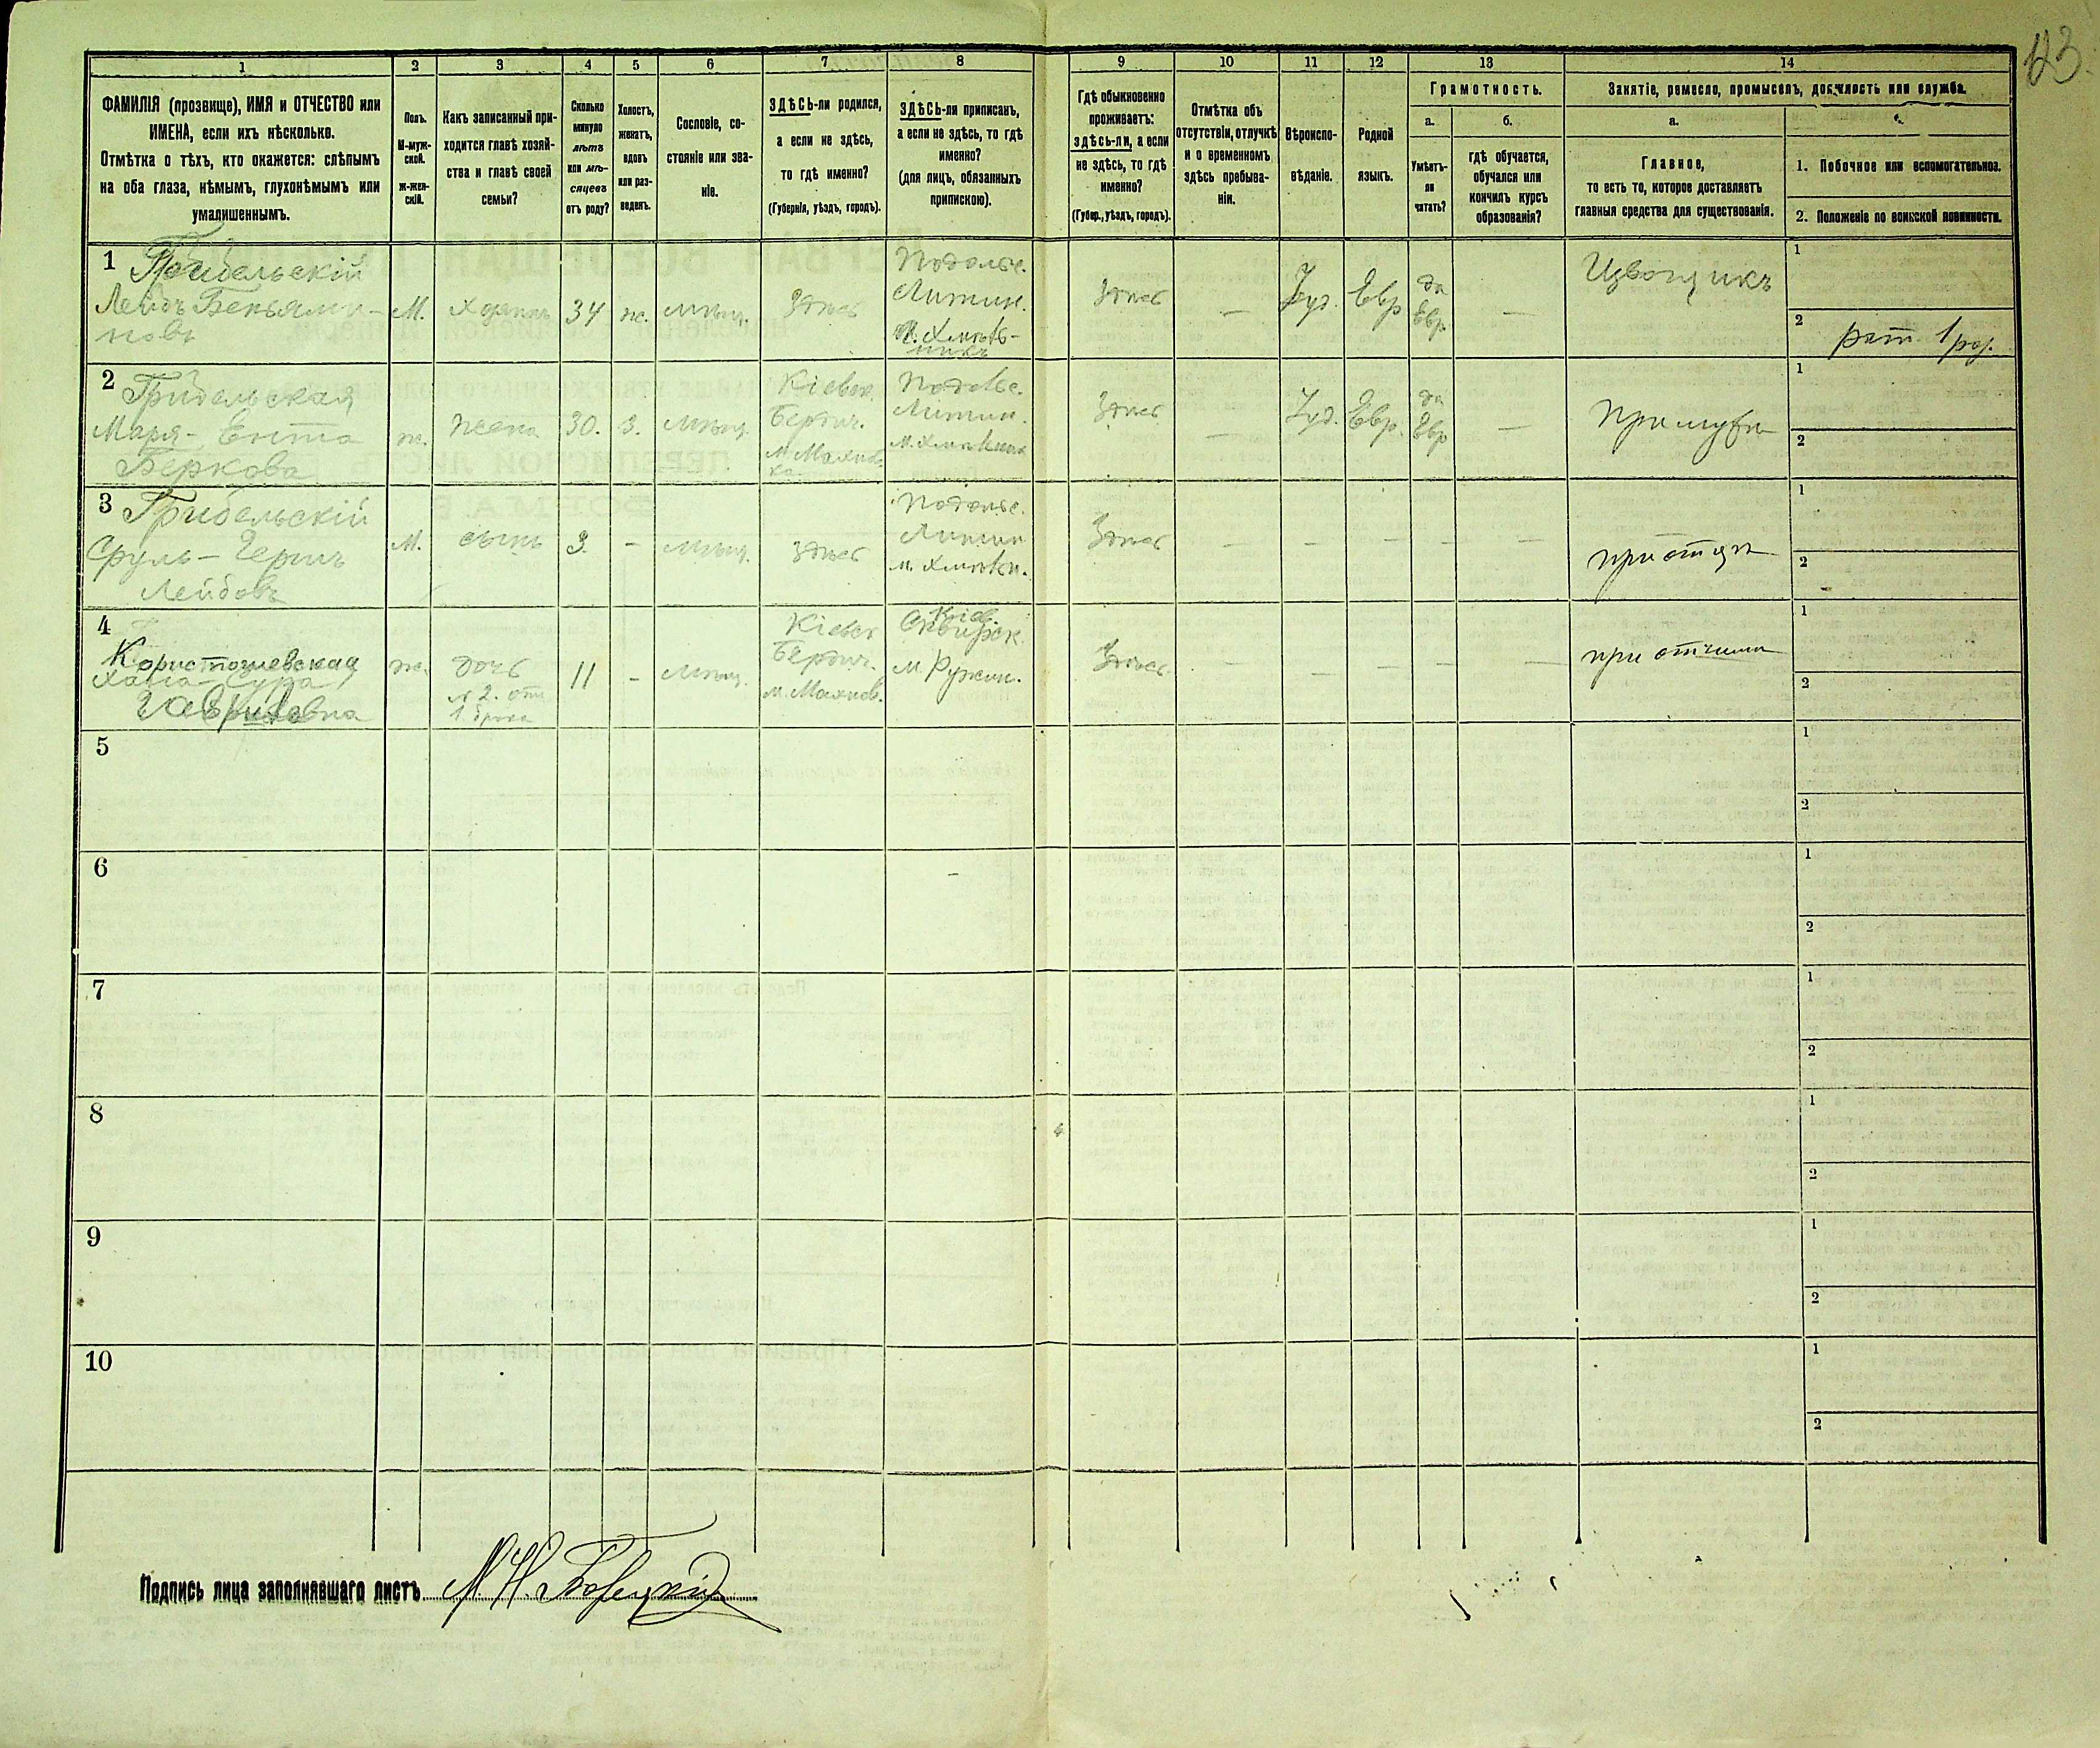 123.
1
2
3
4
5
6
7
8
9
10
11
12
13
14
ФАМИЛІЯ (прозвище), ИМЯ и ОТЧЕСТВО или
ИМЕНА, если ихъ нѣсколько.
Отмѣтка о тѣхъ, кто окажется: слѣпымъ
на оба глаза, нѣмымъ, глухонѣмымъ или
умалишеннымъ.
Полъ.
М-муж-
ской.
Ж-жен-
скій.
Какъ записанный при-
ходится главѣ хозяй-
ства и главѣ своей
семьи?
Сколько
минуло
лѣтъ
или мѣ-
сяцевъ
отъ роду?
Холостъ,
женатъ,
вдовъ
или раз-
веденъ.
Сословіе, со-
стояніе или зва-
ніе.
ЗДѢСЬ-ли родился,
а если не здѣсь,
то гдѣ именно?
(Губернія, уѣздъ, городъ).
ЗДѢСЬ-ли приписанъ,
а если не здѣсь, то гдѣ
именно?
(для лицъ, обязанныхъ
припискою).
Гдѣ обыкновенно
проживаетъ:
здѣсь-ли, а если
не здѣсь, то гдѣ
именно?
(Губер., уѣздъ, городъ).
Отмѣтка объ
отсутствіи, отлучкѣ
и о временномъ
здѣсь пребыва-
ніи.
Вѣроиспо-
вѣданіе.
Родной
языкъ.
Грамотность.
а.
Умѣетъ-
ли
читать?
б.
гдѣ обучается,
обучался или
кончилъ курсъ
образованія?
Занятіе, ремесло, промыселъ, должность или служба.
а.
Главное,
то есть то, которое доставляетъ
главныя средства для существованія.
1. Побочное или вспомогательное.
2. Положеніе по воинской повинности.
1
Грибельскій
Лейбъ Беньями-
новъ
М.
хозяинъ
34
ж.
мѣщ.
здѣсь
Подольс.
Литин.
м. Хмѣль-
никъ
здѣсь
—
Іуд.
Евр
да
Евр
—
Извощикъ
1
2
рат. 1 раз.
2
Грибельская
Маря-Ента
Беркова
ж.
жена
30.
З.
мѣщ.
Кіевск.
Бердич.
м. Махнов-
ка
Подольс.
Литин.
м. Хмѣльник
здѣсь
—
Іуд.
Евр.
да
Евр
—
при мужѣ
1
2
3
Грибельскій
Сруль-Герш
Лейбовъ
М.
сынъ
3.
-
мѣщ.
здѣсь
Подольс.
Литин
м. Хмѣльн.
здѣсь
— — — — —
при отцѣ
1
2
4
Коростошевская
Хана-Сура
Гавриловна
ж.
дочь
№ 2. отъ
1 брака
11
-
мѣщ.
Кіевск
Бердич.
м. Махнов.
Кіев.
Сквирск.
м. Ружин.
здѣсь
— — — — —
при отчимѣ
1
2
5
1
2
6
1
2
7
1
2
8
1
2
9
1
2
10
1
2
Подпись лица заполнявшаго листъ